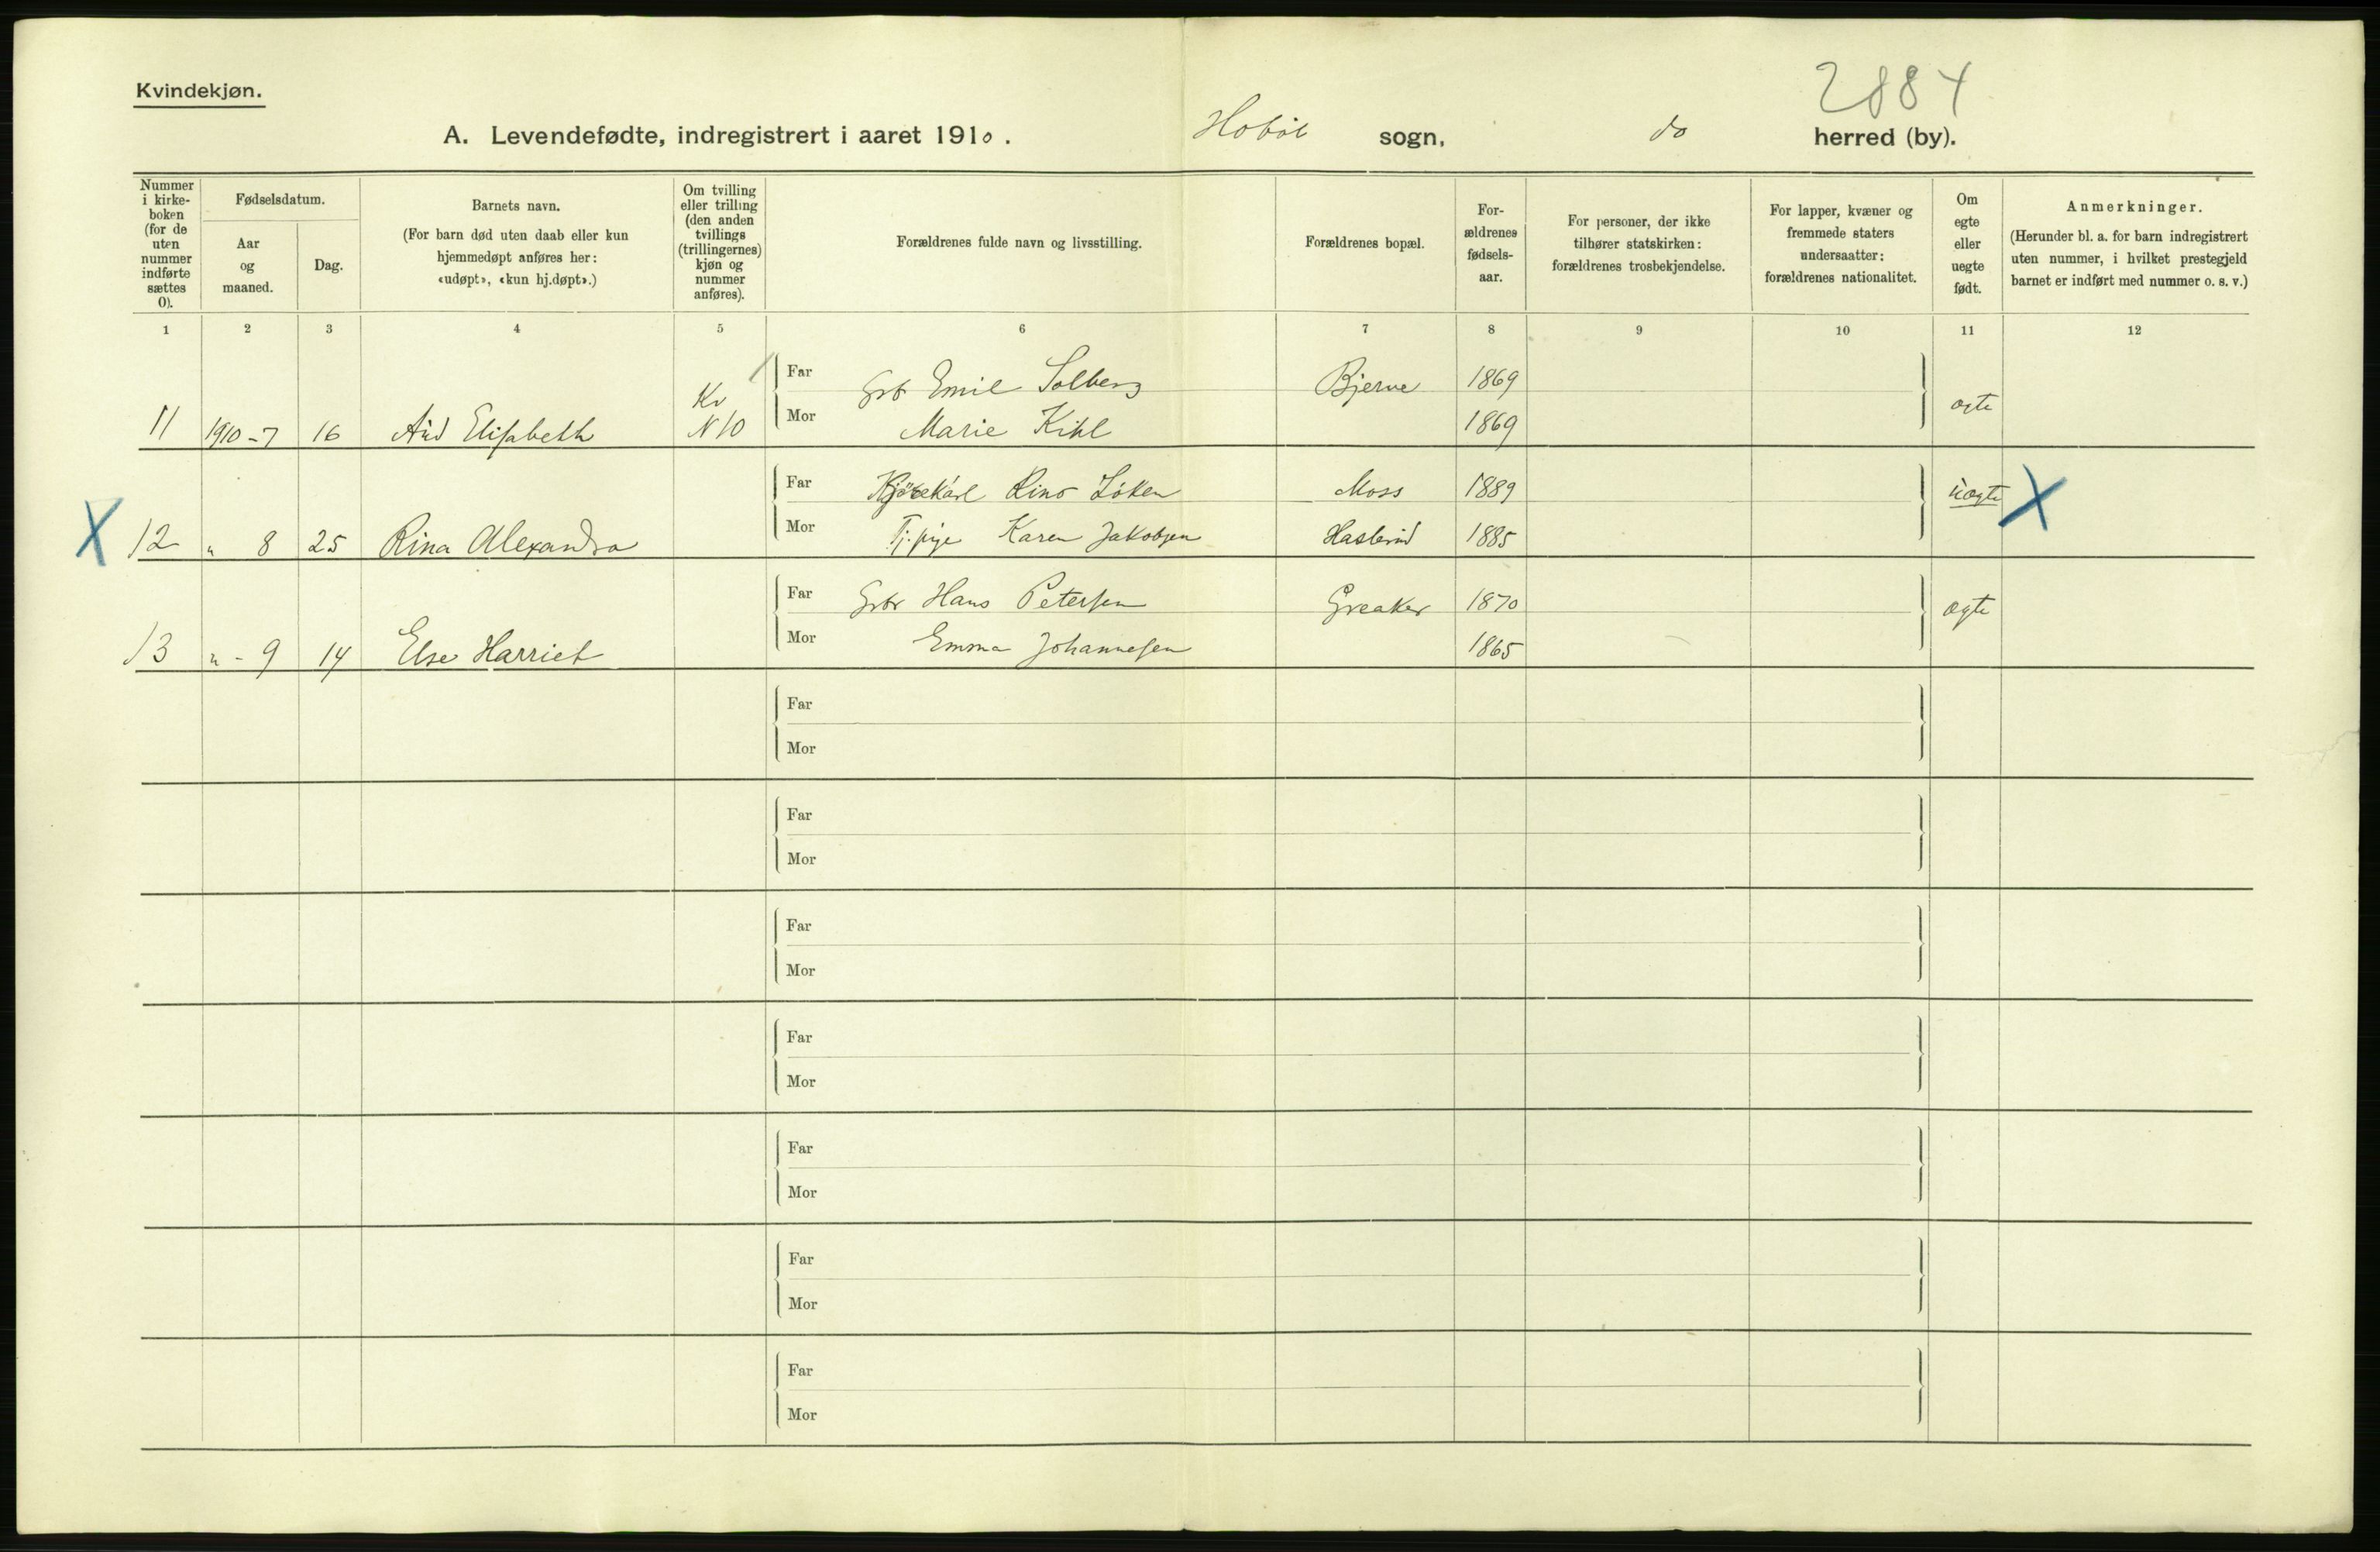 Kvindekjøn.
2884
A. Levendefødte, indregistrert i aaret 1910. Hobøl sogn, do herred (by).
Nummer i kirke-boken (for de uten nummer indførte sættes 0).
Fødselsdatum.
Aar og maaned.
Dag.
Barnets navn.
(For barn død uten daab eller kun hjemmedøpt anføres her: «udøpt», «kun hj.døpt».)
Om tvilling eller trilling (den anden tvillings (trillingernes) kjøn og nummer anføres).
Forældrenes fulde navn og livsstilling.
Forældrenes bopæl.
For-ældrenes fødsels-aar.
For personer, der ikke tilhører statskirken: forældrenes trosbekjendelse.
For lapper, kvæner og fremmede staters undersaatter: forældrenes nationalitet.
Om egte eller uegte født.
Anmerkninger.
(Herunder bl. a. for barn indregistrert uten nummer, i hvilket prestegjeld barnet er indført med nummer o. s. v.)
1 2 3 4 5 6 7 8 9 10 11 12
Far Gbr Emil Solberg Bjerve 1869
11 1910-7 16 Aud Elisabeth Kv N 10 Mor Marie Kihl 1869 ægte
Far Kjørekarl Rino Løken Moss 1889 uægte X
X 12 " 8 25 Rina Alexandra Mor Tj. pige Karen Jakobsen 1885
Far Gbr Hans Petersen Greaker 1870 ægte
13 " - 9 14 Else Harriet Mor Emma Johannesen 1865
Far
Mor
Far
Mor
Far
Mor
Far
Mor
Far
Mor
Far
Mor
Far
Mor